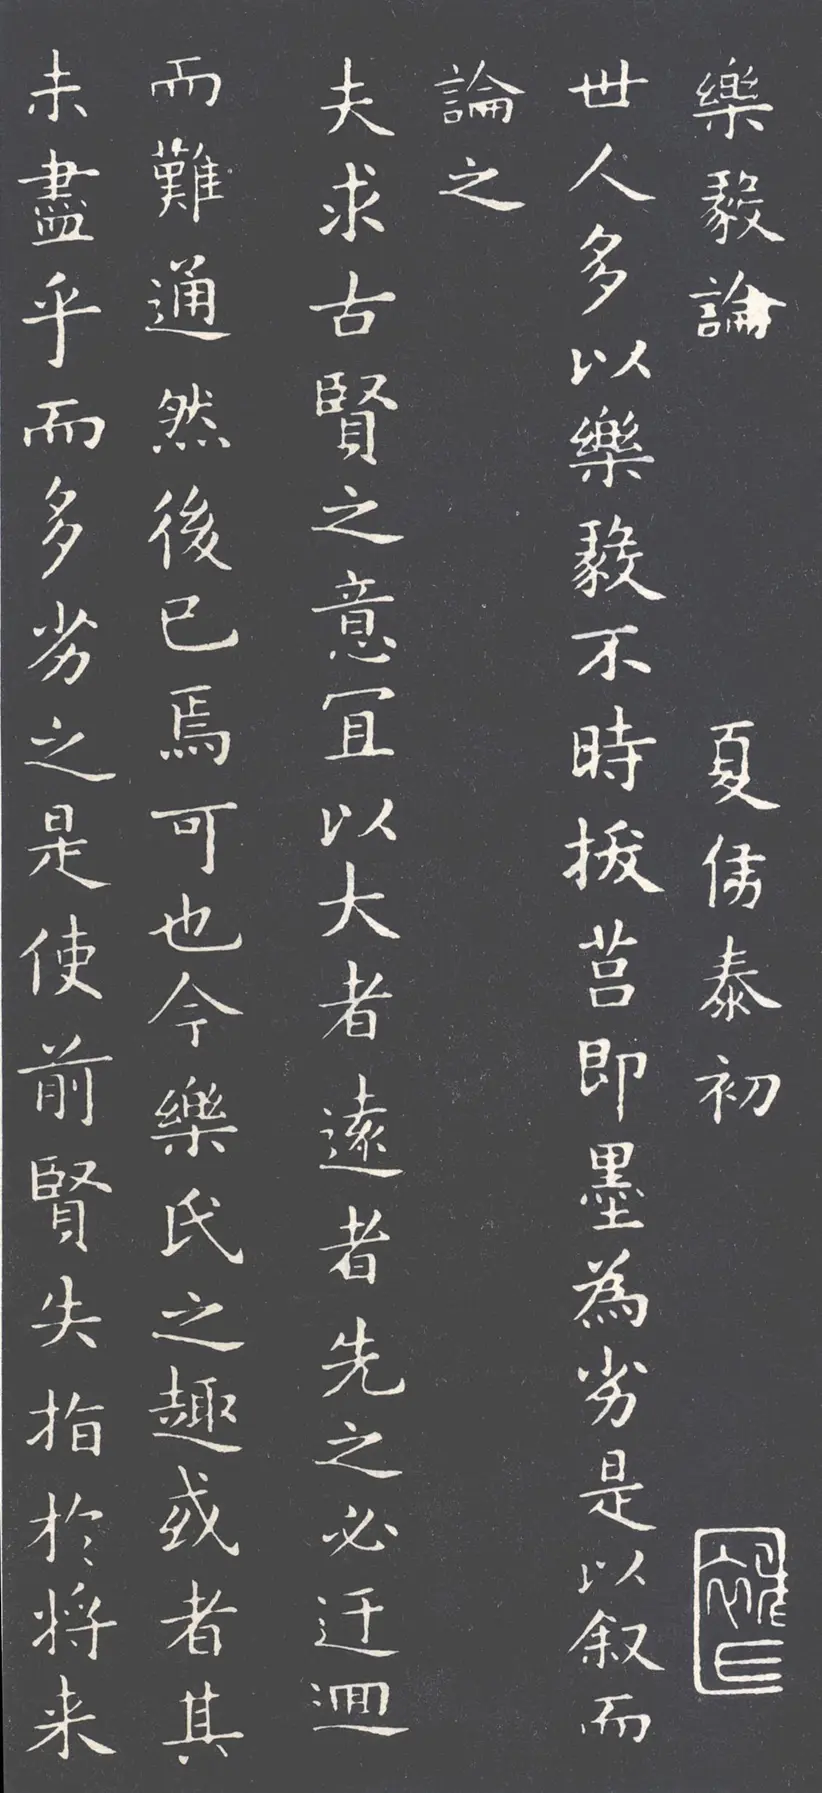 樂毅論 夏侯泰初
世人多以樂毅不時拔莒即墨為劣是以叙而
論之
夫求古賢之意宜以大者遠者先之必迂迴
而難通然後已焉可也今樂氏之趣或者其
未盡乎而多劣之是使前賢失指於将来